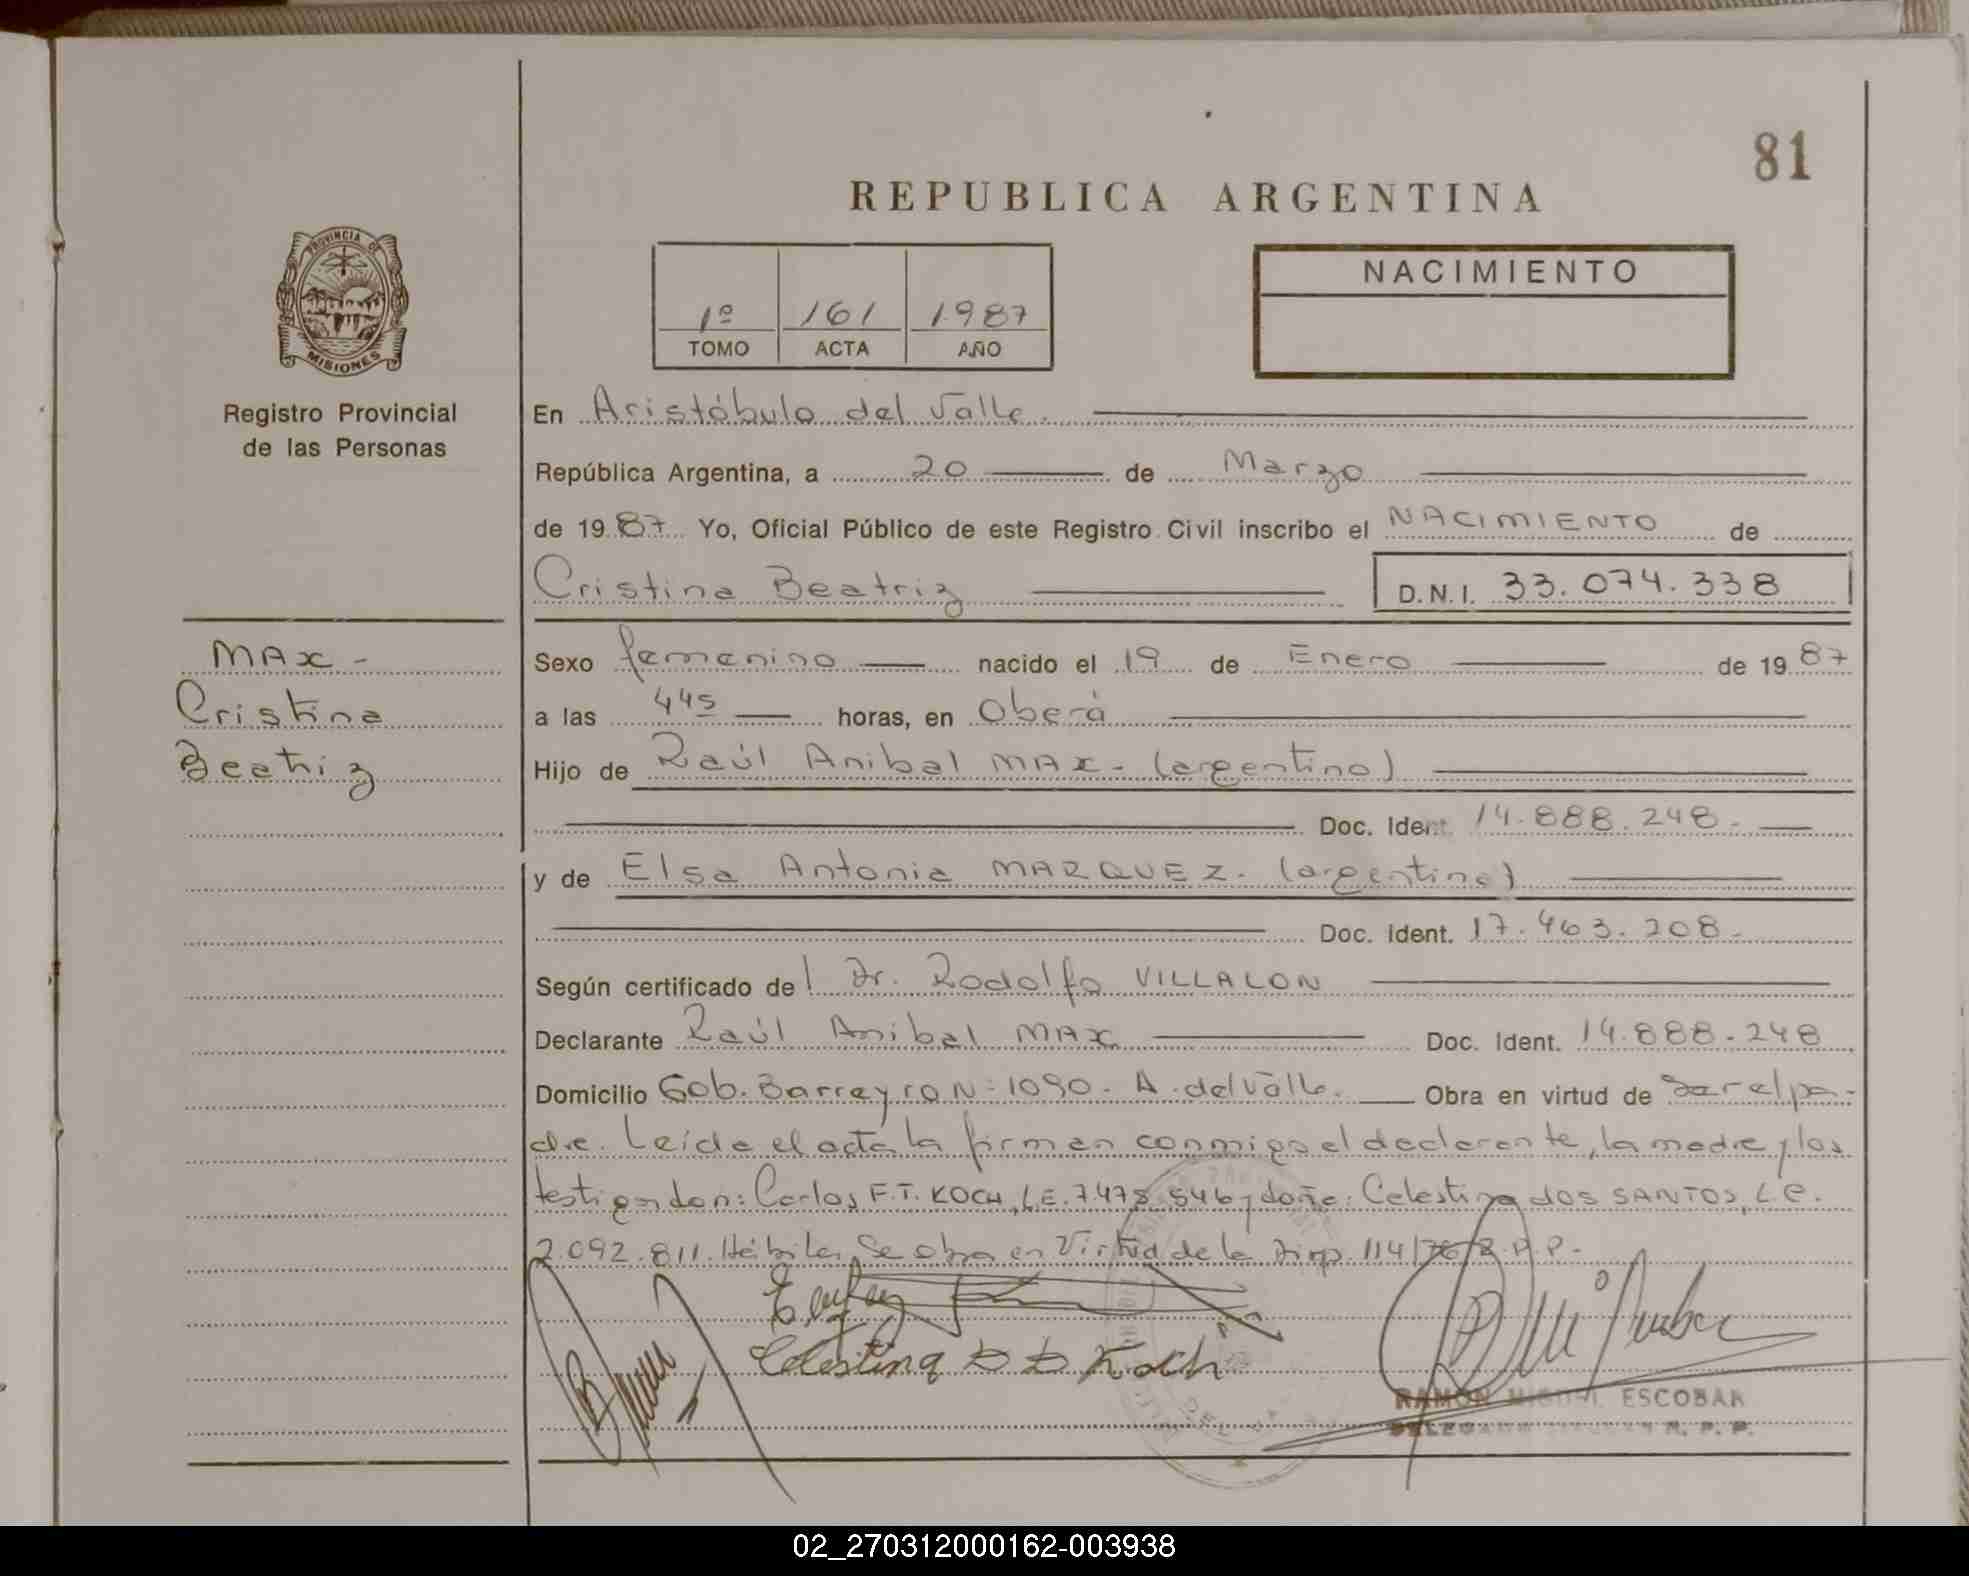 81
REPUBLICA ARGENTINA
PROVINCIA DE
MISIONES
Registro Provincial
de las Personas
1º 161 1987
TOMO ACTA AÑO
NACIMIENTO
En Aristóbulo del Valle.
República Argentina, a 20 de Marzo
de 1987 Yo, Oficial Público de este Registro Civil inscribo el NACIMIENTO de
Cristina Beatriz D.N.I. 33.074.338
MAX -
Cristina
Beatriz
Sexo femenino nacido el 19 de Enero de 1987
a las 445 horas, en Oberá
Hijo de Raúl Anibal MAX - (argentino)
Doc. Ident. 14.888.248.-
y de Elsa Antonia MARQUEZ. (argentina)
Doc. Ident. 17.463.208.-
Según certificado del Dr. Rodolfo VILLALON
Declarante Raúl Anibal MAX Doc. Ident. 14.888.248
Domicilio Gob. Barreyro N: 1090. A. del Valle. Obra en virtud de ser el pa-
dre. Leída el acta la firman conmigo el declarante, la madre y los
testigos don: Carlos F.T. KOCH, L.E. 7.478.546 y doña: Celestina dos SANTOS, L.C.
2.092.811. Hábiles. Se obra en Virtud de la Disp. 114/76 R.P.P.-
Celestina D D Koch
RAMON MIGUEL ESCOBAR
R. P. P.
02_270312000162-003938